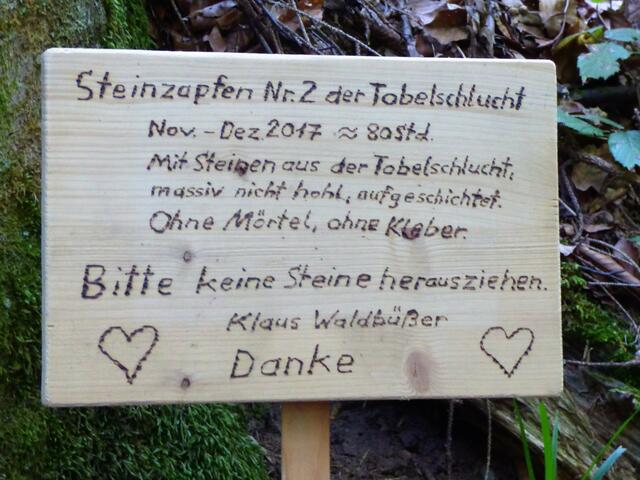 Steinzapfen Nr.2 der Tobelschlucht
Nov.-Dez.2017 ≈ 80Std.
Mit Steinen aus der Tobelschlucht,
massiv nicht hohl, aufgeschichtet.
Ohne Mörtel, ohne Kleber.
Bitte keine Steine herausziehen.
Klaus Waldbüßer
Danke